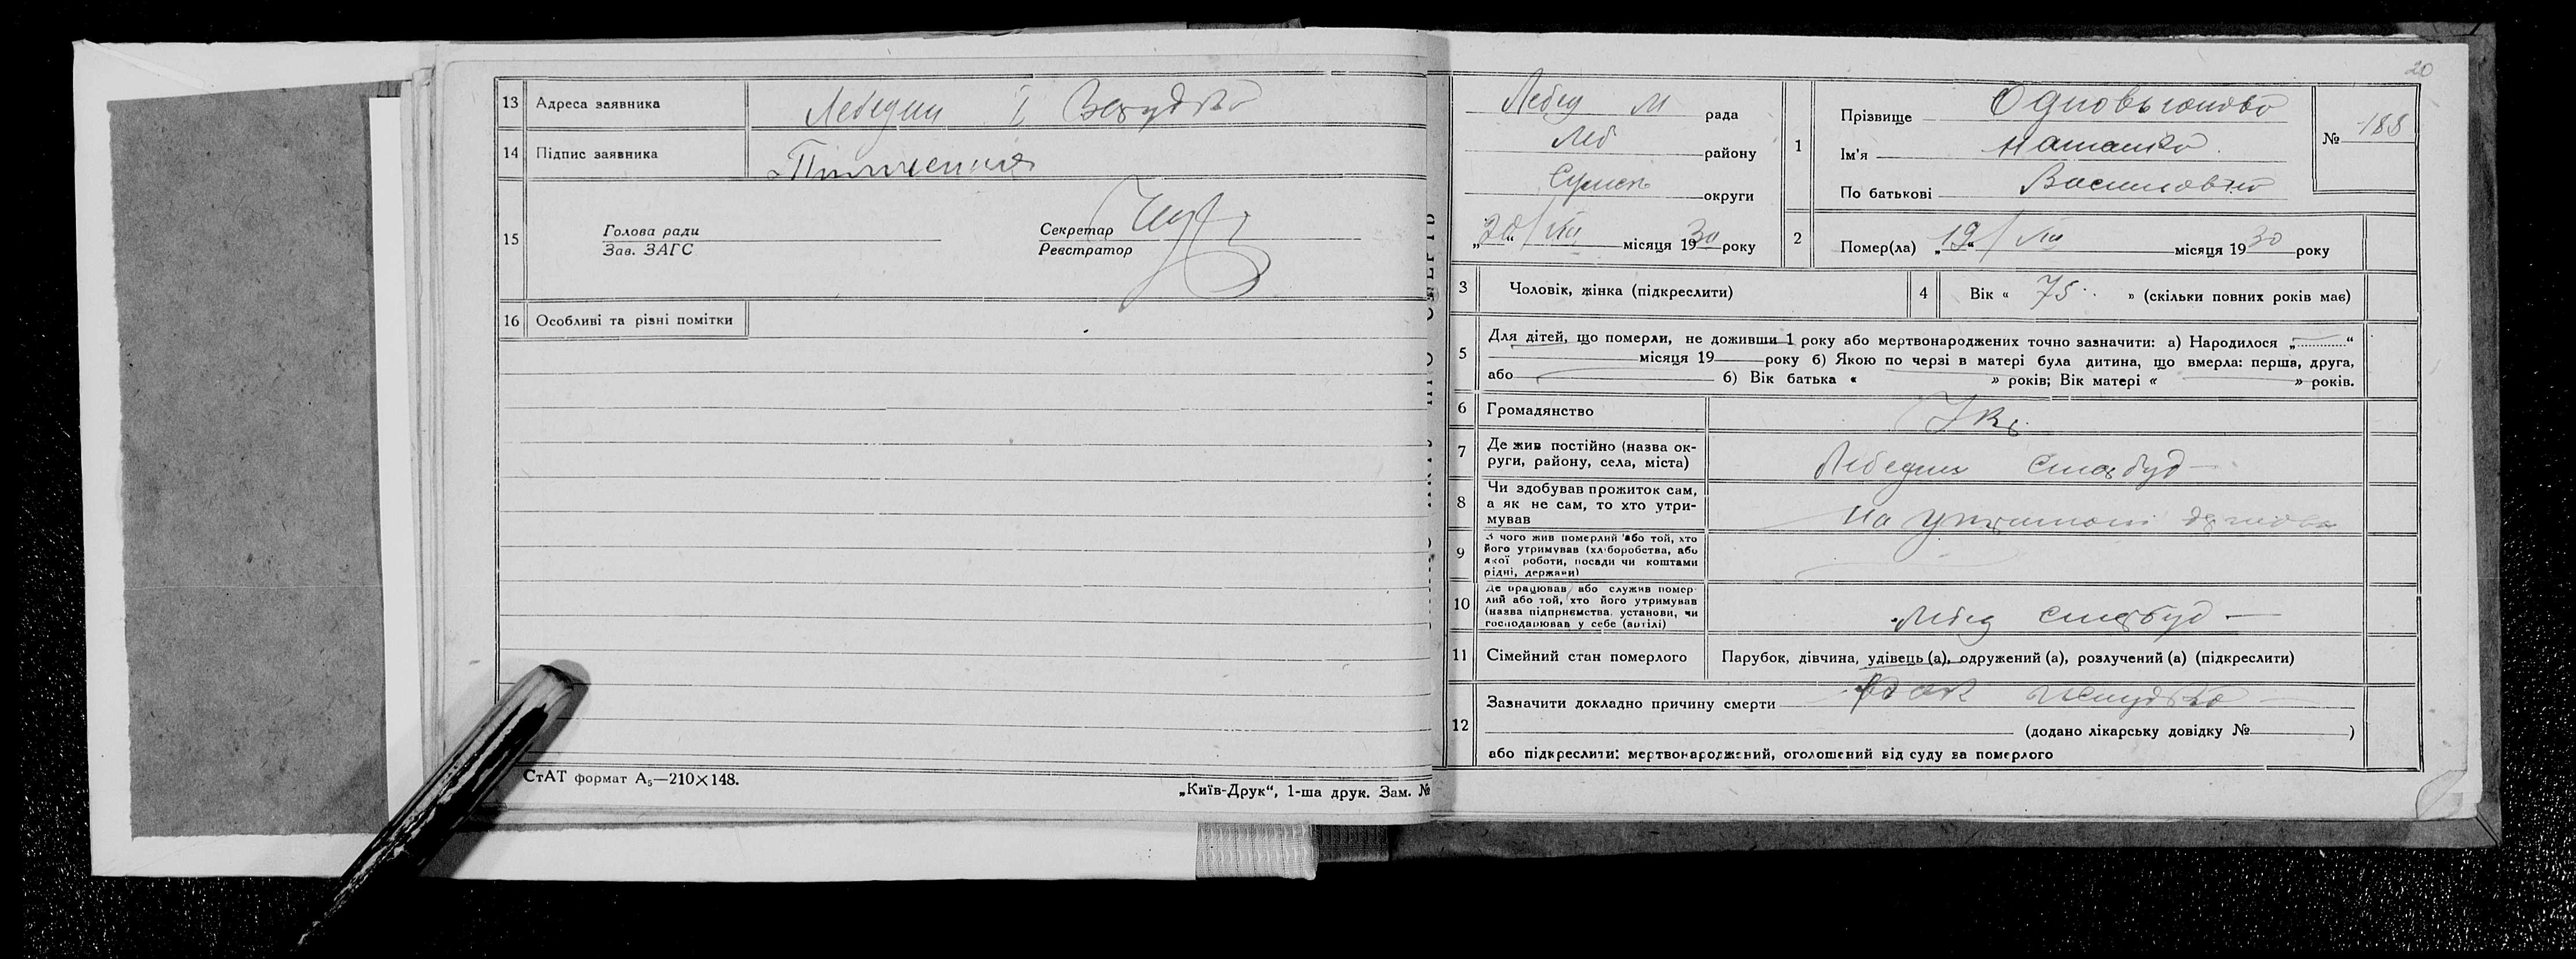 13 Адреса заявника Лебедин I
14 Підпис заявника
15 Голова ради
Зав. ЗАГС
Секретар
Реєстратор
16 Особливі та різні помітки
СтАТ формат А₅—210×148.
„Київ-Друк“, 1-ша друк. Зам. №
20
Лебед М рада
Леб району
Сумск округи
„20“/VIII місяця 1930 року
1 Прізвище
Ім'я Наталка
По батькові Василовна
№ 188
2 Помер(ла) „19“/VIII місяця 1930 року
3 Чоловік, жінка (підкреслити)
4 Вік « 75 » (скільки повних років має)
5 Для дітей, що померли, не доживши 1 року або мертвонароджених точно зазначити: а) Народилося „ “
місяця 19 року б) Якою по черзі в матері була дитина, що вмерла: перша, друга,
або б) Вік батька « » років; Вік матері « » років.
6 Громадянство Укр
7 Де жив постійно (назва ок-
руги, району, села, міста) Лебедин
8 Чи здобував прожиток сам,
а як не сам, то хто утри-
мував На утриманні
9 З чого жив померлий або той, хто
його утримував (хліборобства, або
якої роботи, посади чи коштами
рідні, держави)
10 Де працював або служив помер
лий або той, хто його утримував
(назва підприємства, установи, чи
господарював у себе (артілі) Лебед
11 Сімейний стан померлого Парубок, дівчина, удівець (а), одружений (а), розлучений (а) (підкреслити)
12 Зазначити докладно причину смерти рак желудка
(додано лікарську довідку № )
або підкреслити: мертвонароджений, оголошений від суду за померлого